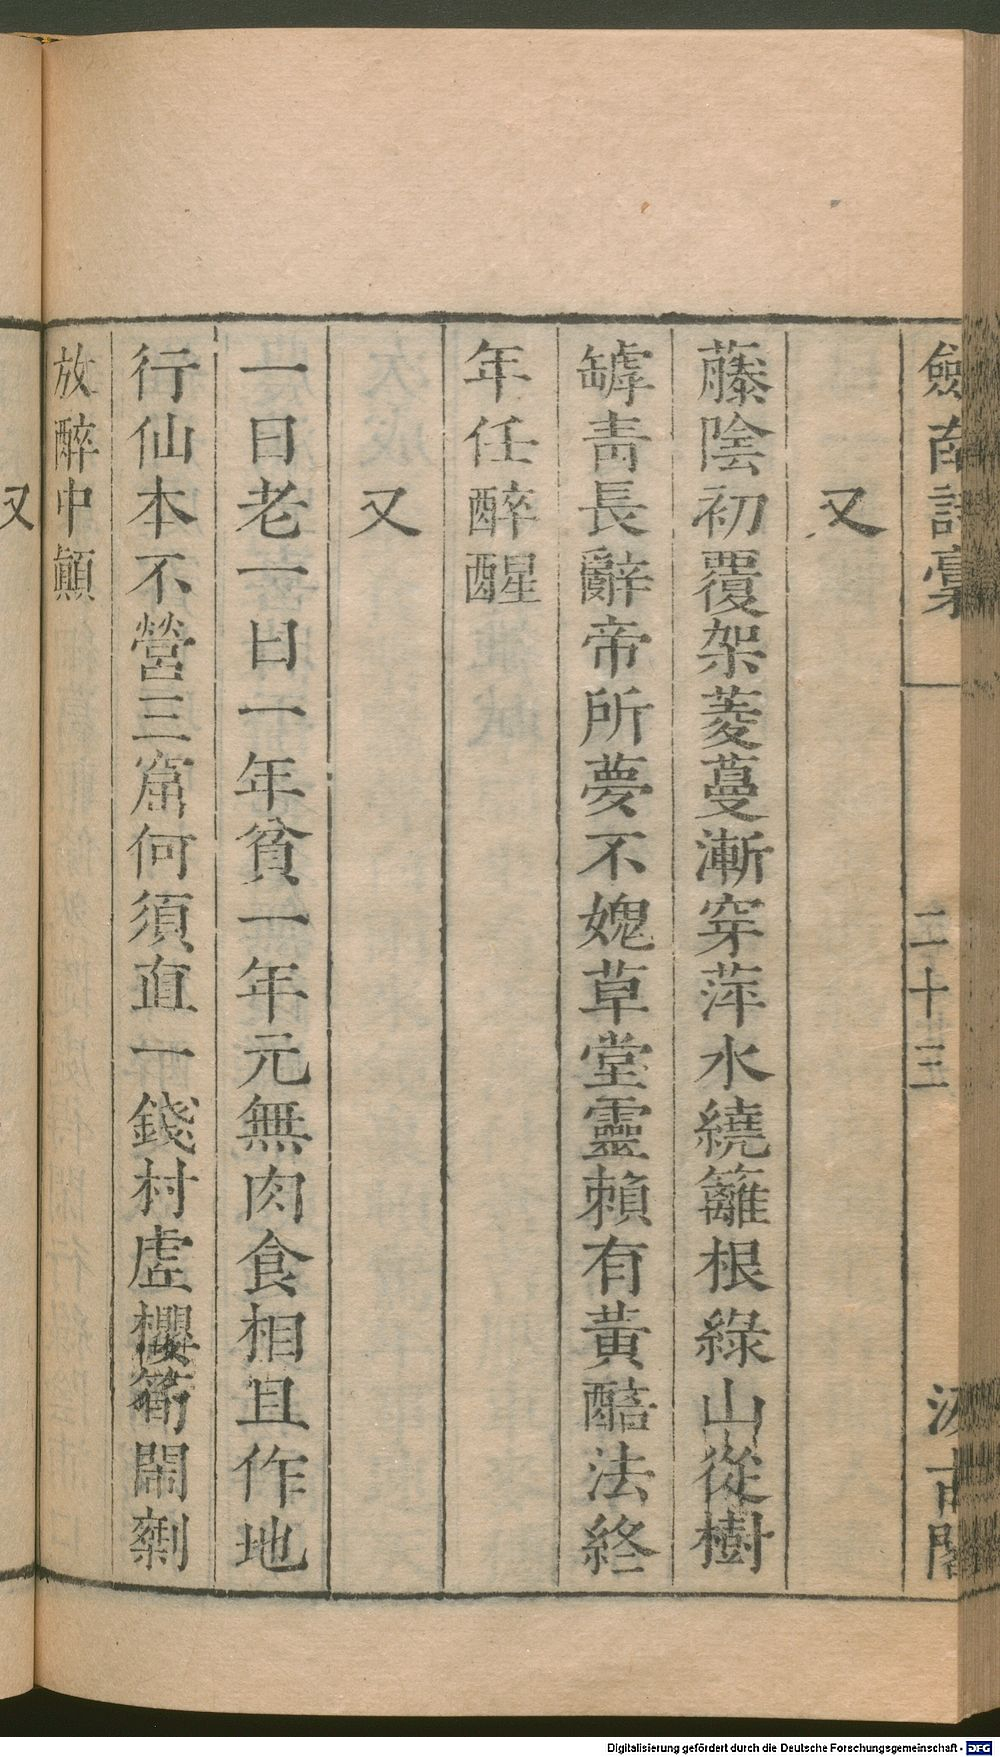 劍南詩稾
二十三
汲古閣
又
藤陰初覆架菱蔓漸穿萍水繞籬根綠山從樹
罅靑長辭帝所夢不媿草堂靈賴有黃醅法終
年任醉醒
又
一日老一日一年貧一年元無肉食相且作地
行仙本不營三窟何須直一錢村虗櫻筍鬧剩
放醉中顛
又
Digitalisierung gefördert durch die Deutsche Forschungsgemeinschaft - DFG